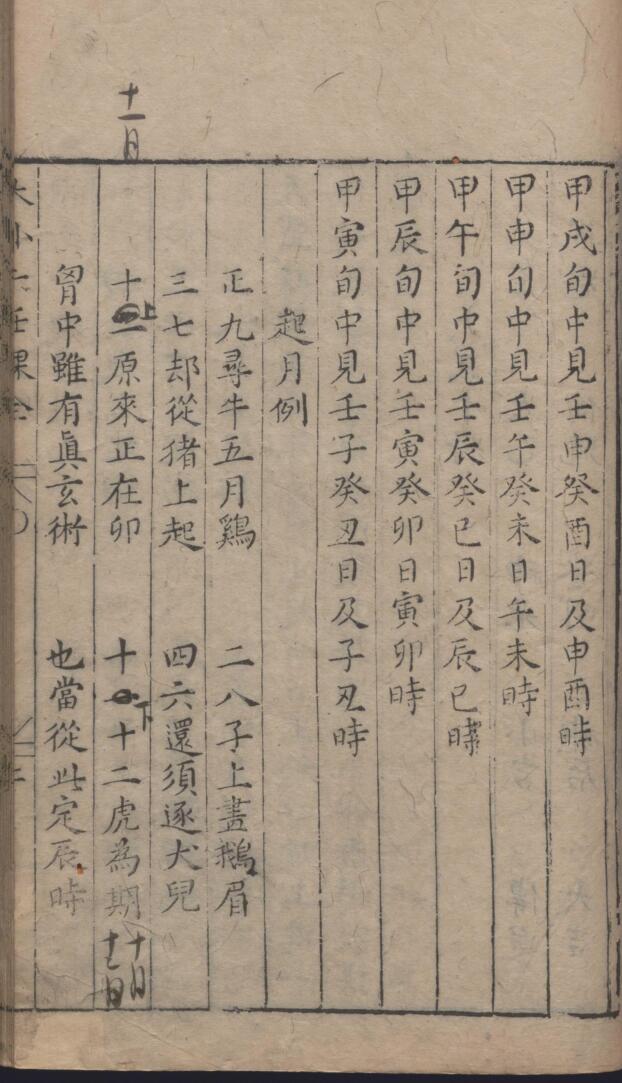 甲戌旬中見壬申癸酉日及申酉時
甲申旬中見壬午癸未日午未時
甲午旬中見壬辰癸巳日及辰巳時
甲辰旬中見壬寅癸卯日寅卯時
甲寅旬中見壬子癸丑日及子丑時
起月例
正九尋牛五月鷄 二八子上畫鵝眉
三七却從猪上起 四六還須逐犬兒
十一月
十二上原來正在卯 十下十二虎為期
十月
十二月
胷中雖有眞玄術 也當從此定辰時
大小六壬課全